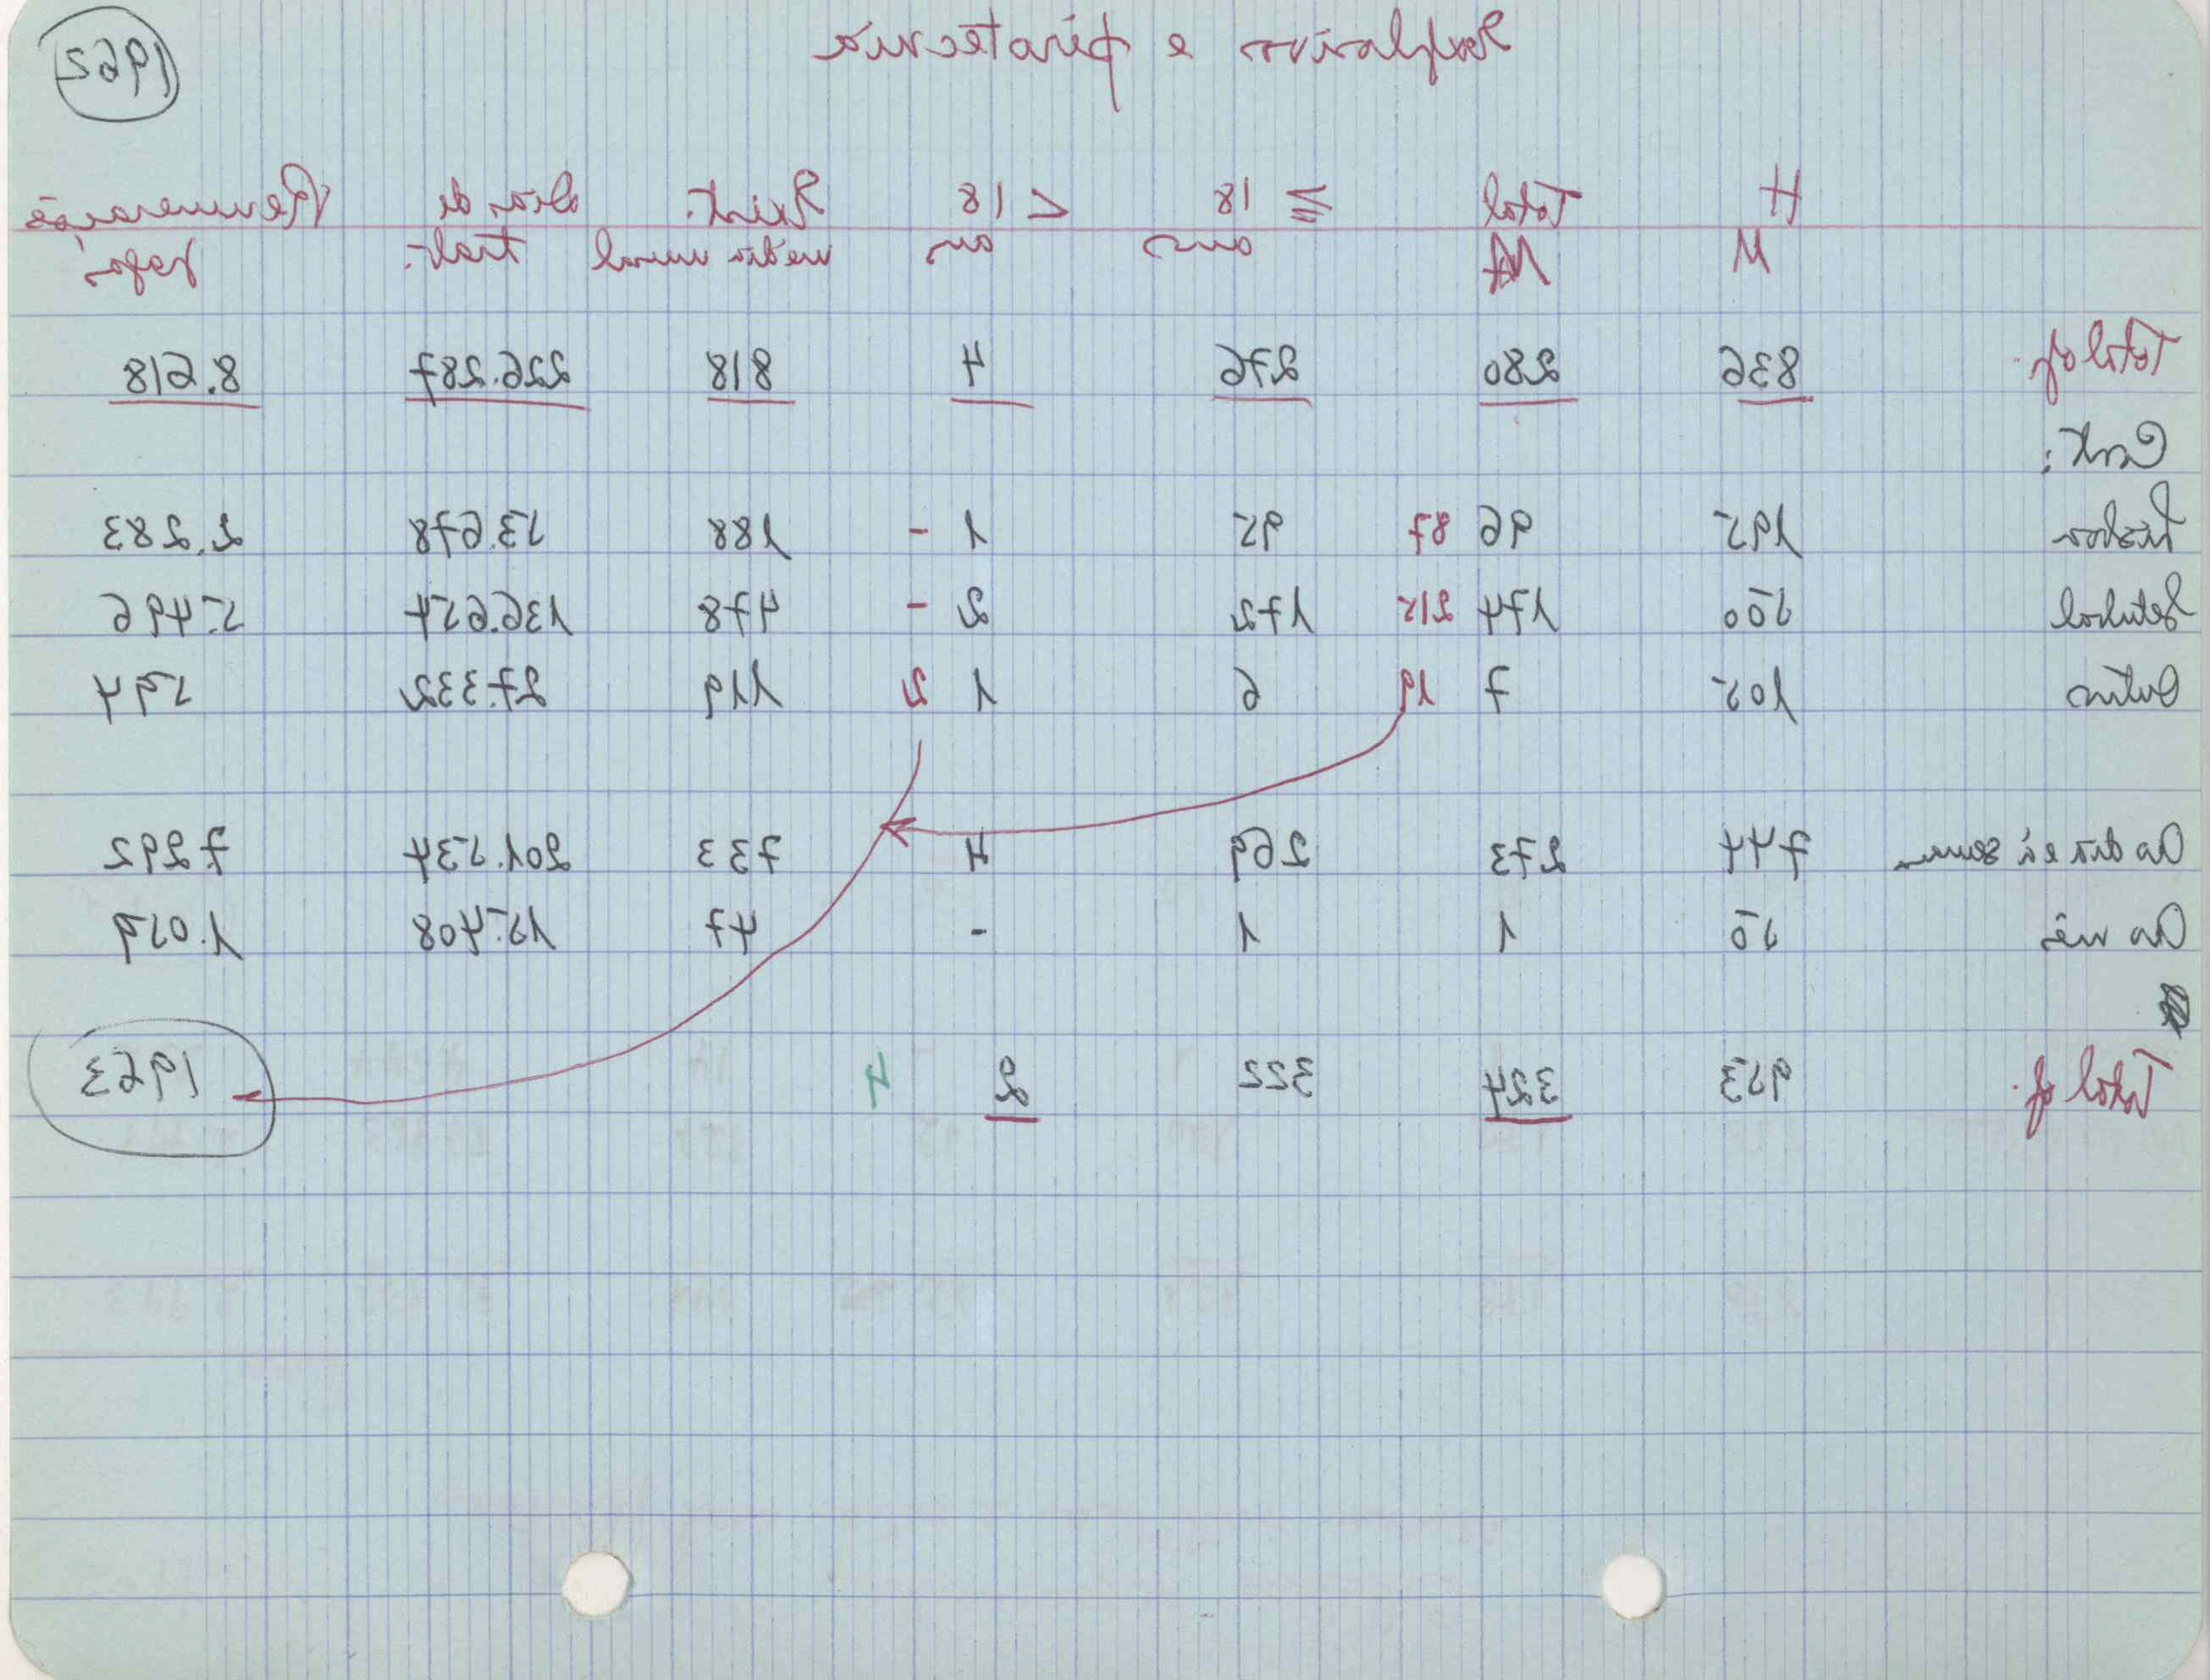 Explosivos e pirotecnia 1962
H M Total M ≧ 18 anos < 18 anos Exist. média anual Dias de trab. Remunerações pagas
Total op. 836 280 276 4 818 226.287 8.618
Cont:
Lisboa 195 96 87 95 1 - 188 53.678 2.283
Setubal 500 174 215 172 2 - 478 136.654 5.496
Outros 105 7 19 6 1 2 119 27.332 594
Ao dia e à semana 744 273 269 4 733 201.534 7292
Ao mês 50 1 1 - 47 15.408 1.059
Total op. 953 324 322 2 4 1963